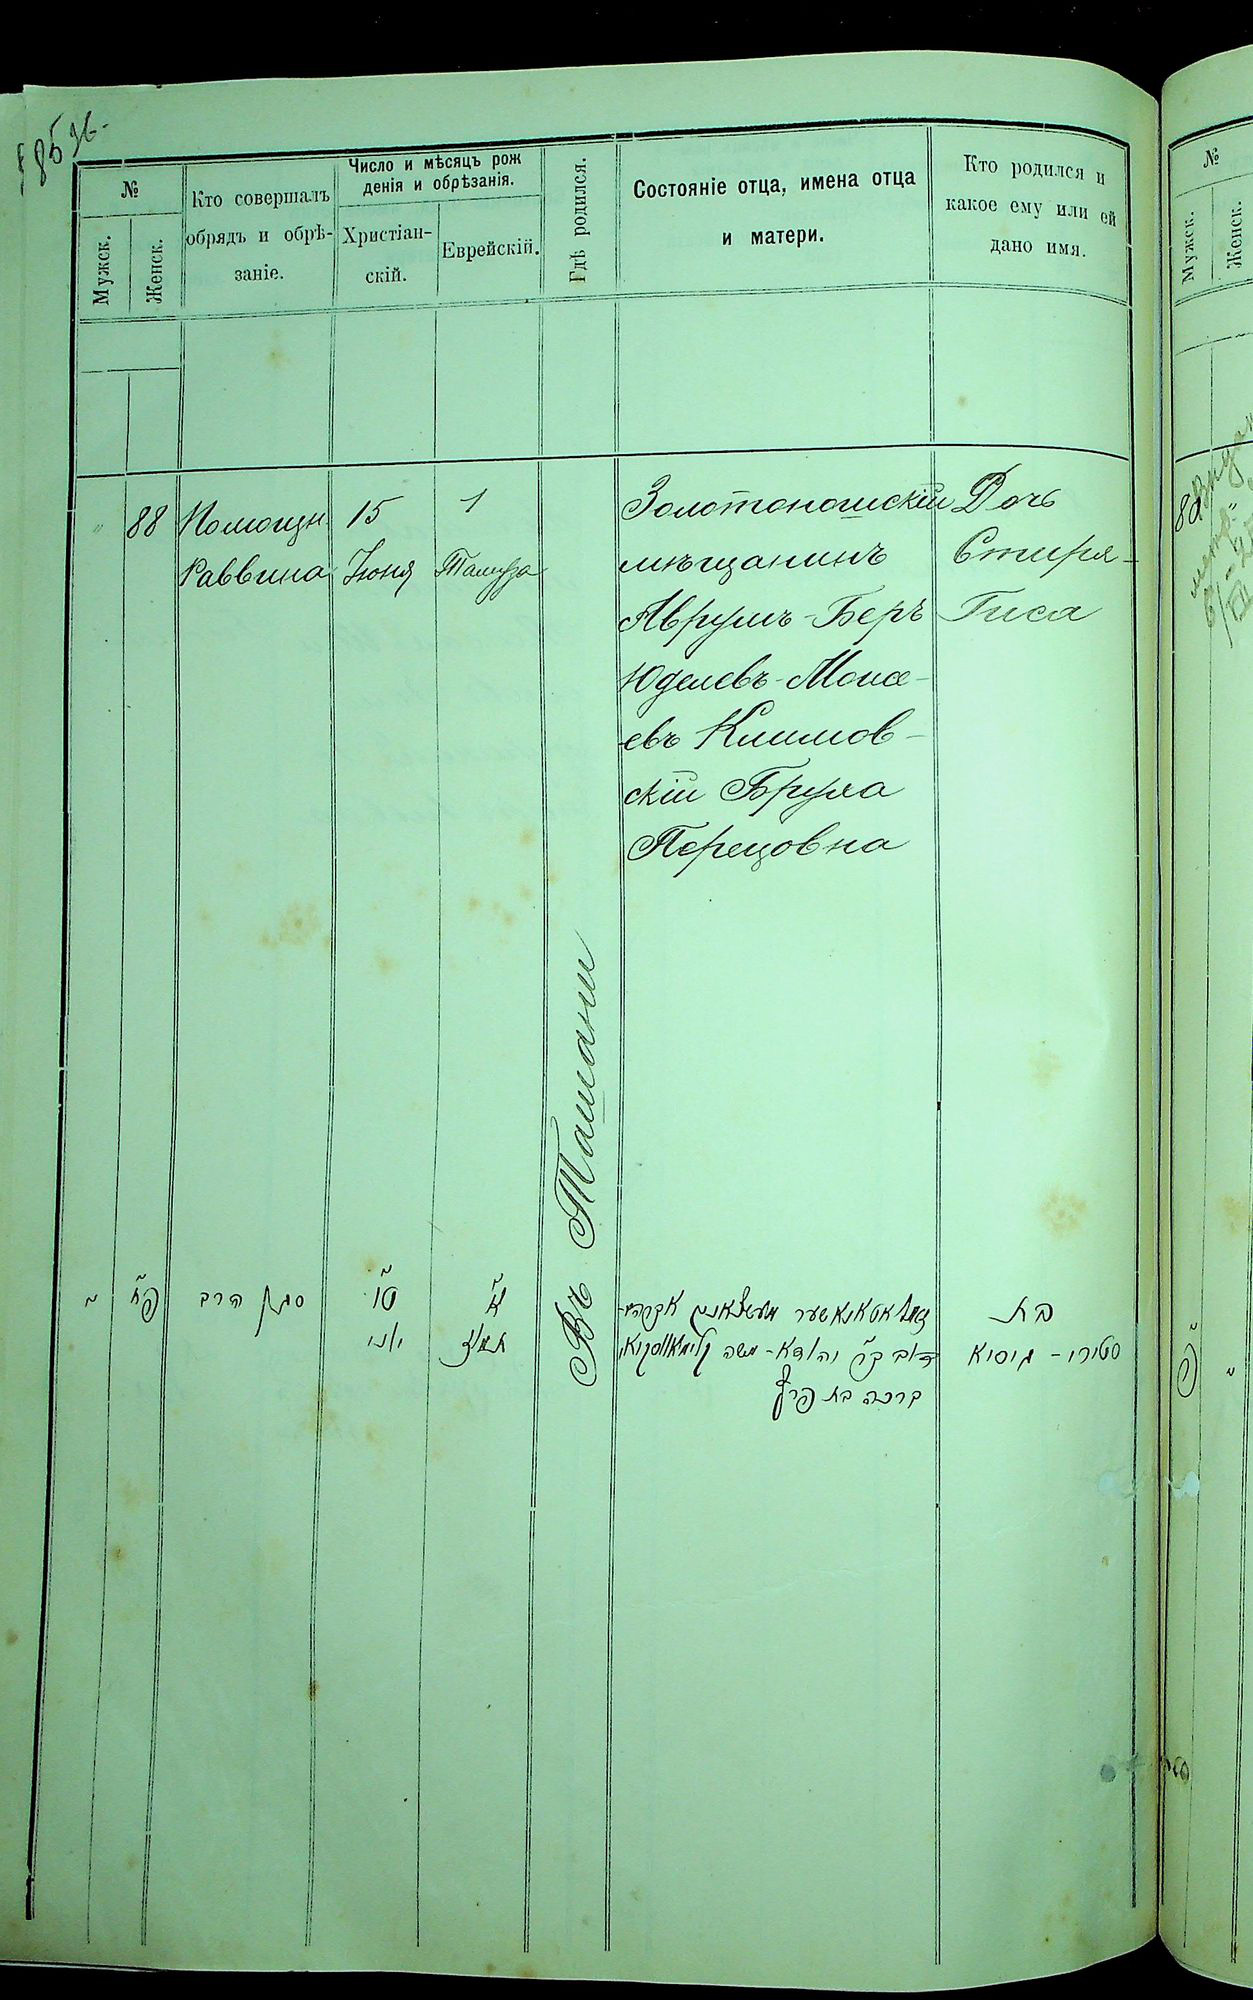 №
Мужск.
Женск.
Кто совершалъ
обрядъ и обрѣ-
заніе.
Число и мѣсяцъ рож
денія и обрѣзанія.
Христіан-
скій.
Еврейскій.
Гдѣ родился.
Состояніе отца, имена отца
и матери.
Кто родился и
какое ему или ей
дано имя.
88
Помощн.
Раввина
15
Іюня
1
Тамуза
Въ Ташани
Золотоношскій
мѣщанинъ
Аврумъ-Беръ
Юделевъ-Моисе-
евъ Климов-
скій Бруха
Перецовна
Дочь
Стиря-
Гиса
פח
סגן הרב
טו
יוני
א
תמוז
אברהם-
דוב בר יהודא-משה
ברכה בת פרץ
בת
סטירי-גיסיא
№
Мужск.
Женск.